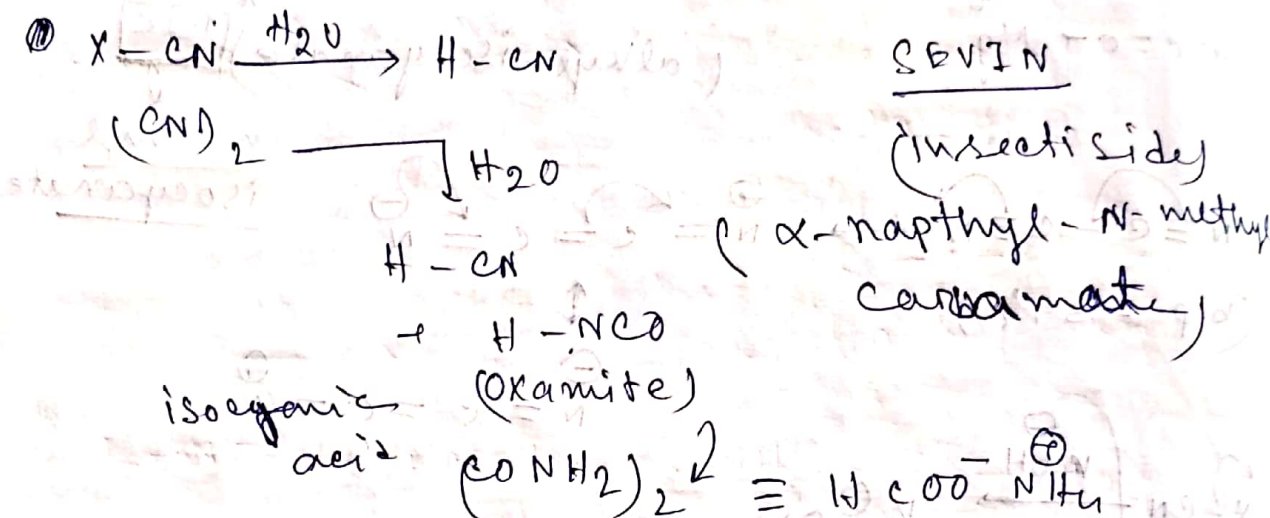 X - CN H2O → H - CN
(CN)2 H2O
H - CN
+ H - NCO
isocyanic (Oxamite)
acid (CONH2)2 ≡ HCOO⁻ N⊕H4
SEVIN
(insectiside)
(α-napthyl - N-methyl
carbamate)